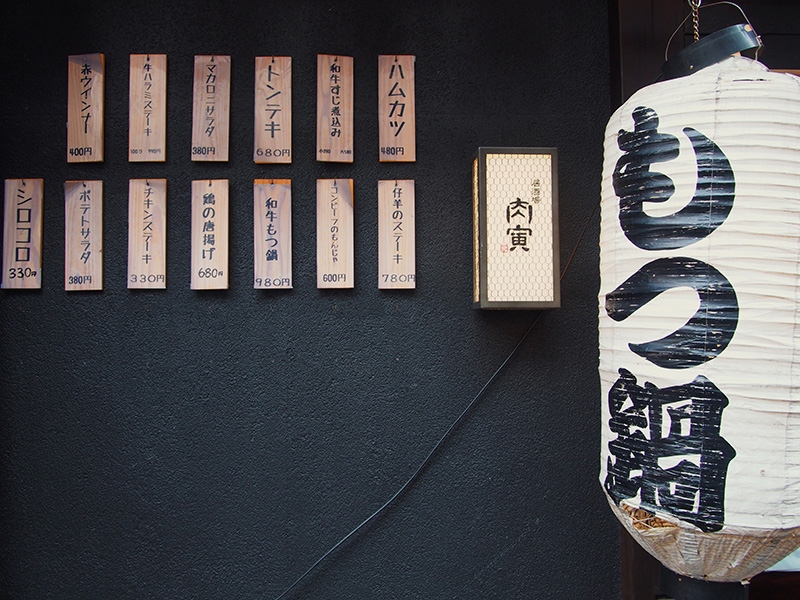 ハムカツ
480円
和牛すじ煮込み
トンテキ
680円
マカロニサラダ
380円
牛ハラミステーキ
赤ウインナー
400円
仔羊のステーキ
780円
コンビーフのもんじゃ
600円
和牛もつ鍋
980円
鶏の唐揚げ
680円
チキンステーキ
330円
ポテトサラダ
380円
シロコロ
330円
居酒場
肉寅
もつ鍋